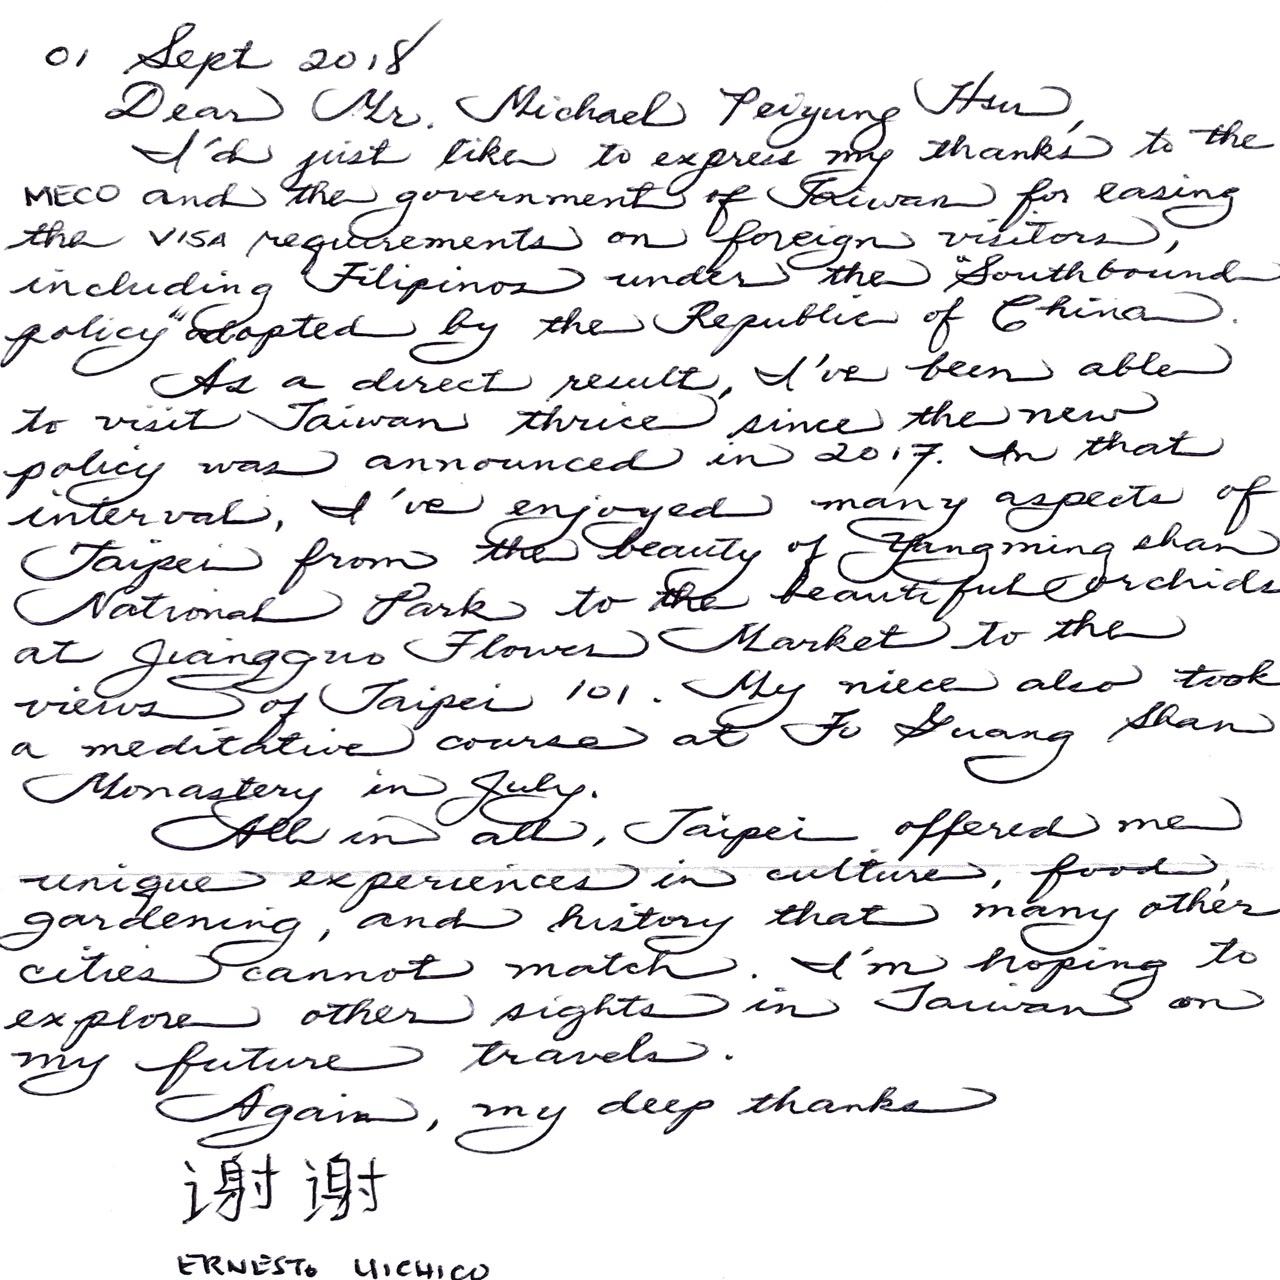 01 Sept 2018
Dear Mr. Michael Peiyung Hsu,
I'd just like to express my thanks to the
MECO and the government of Taiwan for easing
the VISA requirements on foreign visitors,
including Filipinos under the "Southbound
policy" adopted by the Republic of China.
As a direct result, I've been able
to visit Taiwan thrice since the new
policy was announced in 2017. In that
interval, I've enjoyed many aspects of
Taipei from the beauty of Yangming shan
National Park to the beautiful orchids
at Jiangguo Flower Market to the
views of Taipei 101. My niece also took
a meditative course at Fo Guang Shan
Monastery in July.
All in all, Taipei offered me
unique experiences in culture, food,
gardening, and history that many other
cities cannot match. I'm hoping to
explore other sights in Taiwan on
my future travels.
Again, my deep thanks
谢谢
ERNESTO